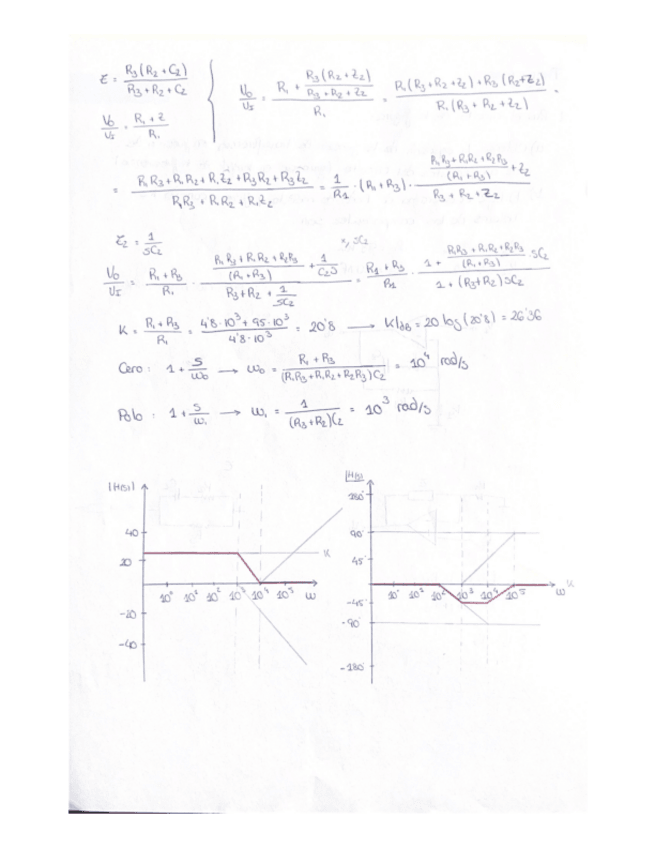 Z = R3(R2+C2) / (R3+R2+C2)
Vo/VI = (R1+Z)/R1
Vo/VI = (R1 + R3(R2+Z2)/(R3+R2+Z2)) / R1 = (R1(R3+R2+Z2) + R3(R2+Z2)) / (R1(R3+R2+Z2))
= (R1R3+R1R2+R1Z2+R3R2+R3Z2) / (R1R3+R1R2+R1Z2) = 1/R1 · (R1+R3) · ((R1R3+R1R2+R2R3)/(R1+R3) + Z2) / (R3+R2+Z2)
Z2 = 1/SC2
Vo/VI = (R1+R3)/R1 · ((R1R3+R1R2+R2R3)/(R1+R3) + 1/C2S) / (R3+R2+1/SC2) = (R1+R3)/R1 · (1 + (R1R3+R1R2+R2R3)/(R1+R3) · SC2) / (1+(R3+R2)SC2)
K = (R1+R3)/R1 = (4'8·10³ + 95·10³)/(4'8·10³) = 20'8 → K|dB = 20 log(20'8) = 26'36
Cero : 1+S/ω0 → ω0 = (R1+R3)/((R1R3+R1R2+R2R3)C2) = 10⁴ rad/s
Polo : 1+S/ω1 → ω1 = 1/((R3+R2)C2) = 10³ rad/s
|H(s)|
40
20
-20
-40
10² 10³ 10⁴ 10⁵ ω
K
|H(s)
180°
90°
45°
-45°
-90°
-180°
10¹ 10² 10² 10³ 10⁴ 10⁵ ω
K